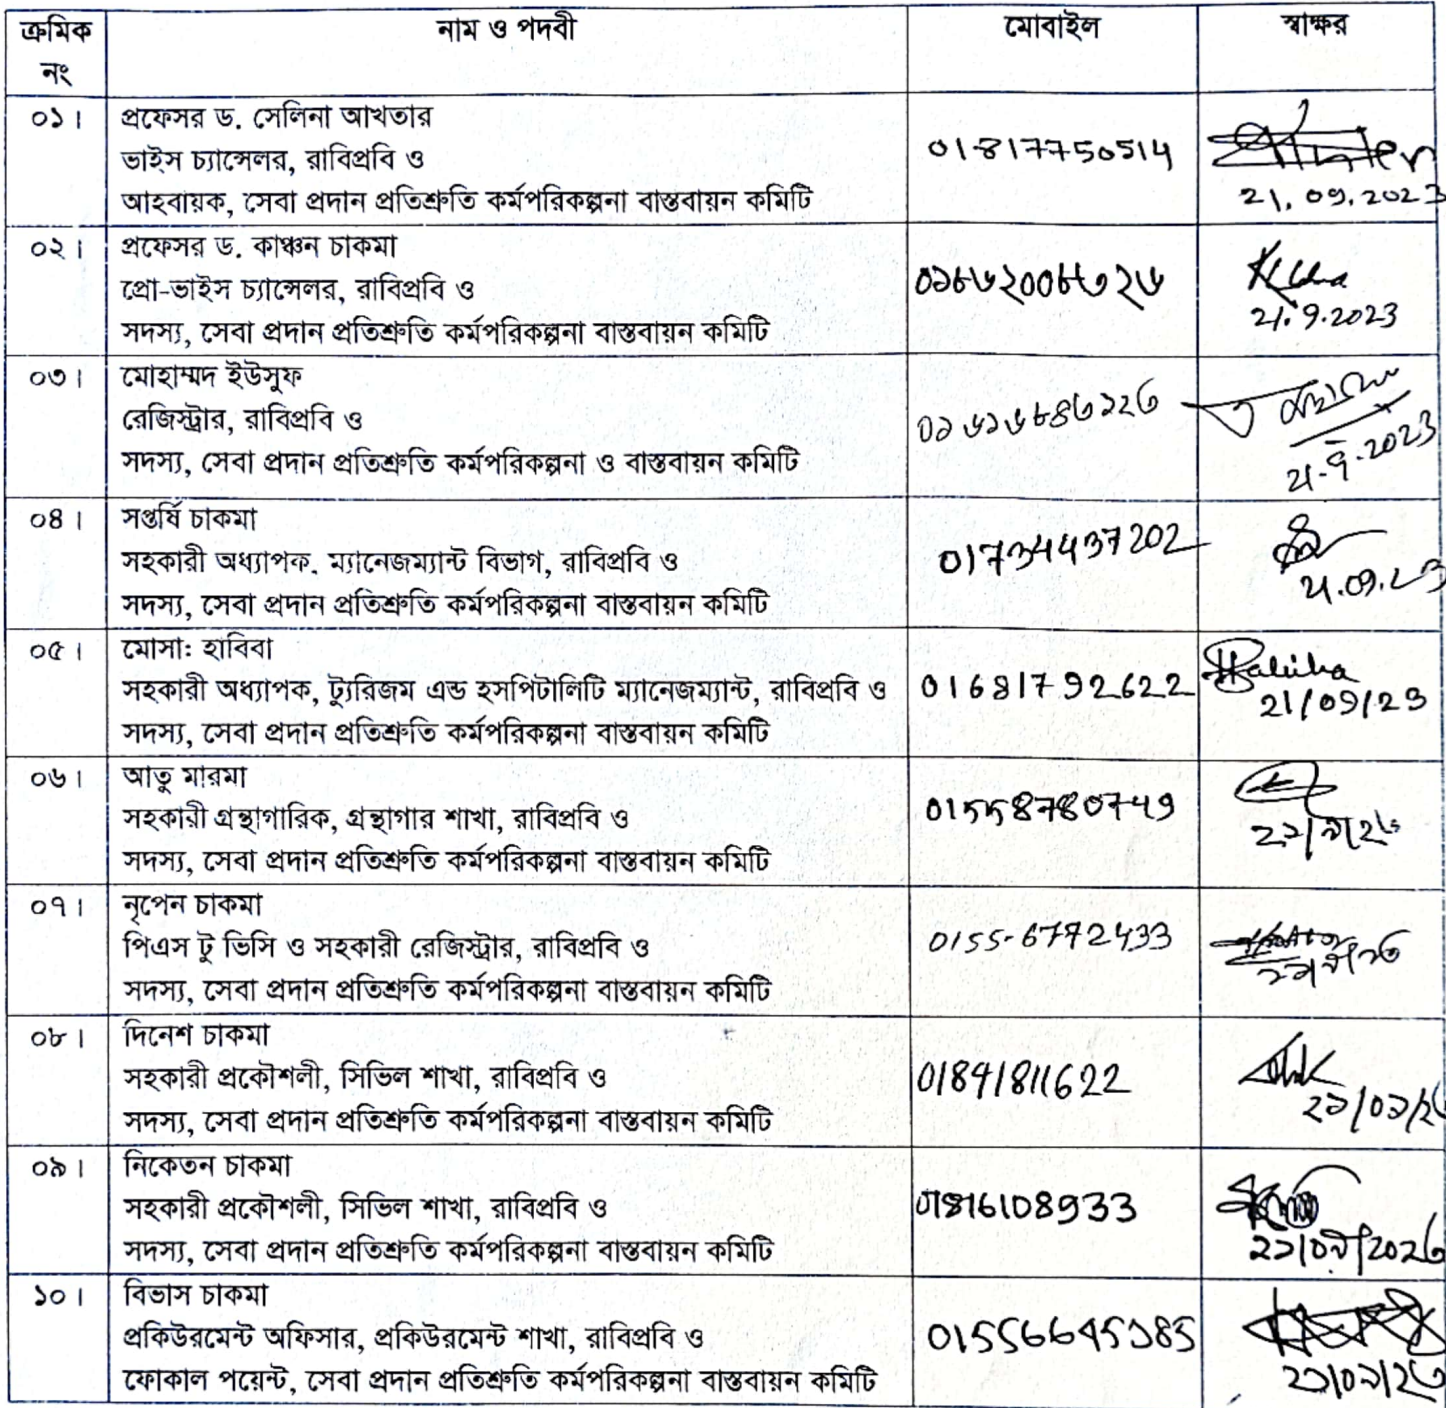 ক্রমিক নং
নাম ও পদবী
মোবাইল
স্বাক্ষর
০১।
প্রফেসর ড. সেলিনা আখতার
ভাইস চ্যান্সেলর, রাবিপ্রবি ও
আহবায়ক, সেবা প্রদান প্রতিশ্রুতি কর্মপরিকল্পনা বাস্তবায়ন কমিটি
01817750514
21.09.2023
০২।
প্রফেসর ড. কাঞ্চন চাকমা
প্রো-ভাইস চ্যান্সেলর, রাবিপ্রবি ও
সদস্য, সেবা প্রদান প্রতিশ্রুতি কর্মপরিকল্পনা বাস্তবায়ন কমিটি
21.9.2023
০৩।
মোহাম্মদ ইউসুফ
রেজিস্ট্রার, রাবিপ্রবি ও
সদস্য, সেবা প্রদান প্রতিশ্রুতি কর্মপরিকল্পনা ও বাস্তবায়ন কমিটি
21-9-2023
০৪।
সপ্তর্ষি চাকমা
সহকারী অধ্যাপক, ম্যানেজম্যান্ট বিভাগ, রাবিপ্রবি ও
সদস্য, সেবা প্রদান প্রতিশ্রুতি কর্মপরিকল্পনা বাস্তবায়ন কমিটি
01734437202
21.09.23
০৫।
মোসাঃ হাবিবা
সহকারী অধ্যাপক, ট্যুরিজম এন্ড হসপিটালিটি ম্যানেজম্যান্ট, রাবিপ্রবি ও
সদস্য, সেবা প্রদান প্রতিশ্রুতি কর্মপরিকল্পনা বাস্তবায়ন কমিটি
01681792622
Habiba
21/09/23
০৬।
আতু মারমা
সহকারী গ্রন্থাগারিক, গ্রন্থাগার শাখা, রাবিপ্রবি ও
সদস্য, সেবা প্রদান প্রতিশ্রুতি কর্মপরিকল্পনা বাস্তবায়ন কমিটি
01558780749
২১/৯/২৩
০৭।
নৃপেন চাকমা
পিএস টু ভিসি ও সহকারী রেজিস্ট্রার, রাবিপ্রবি ও
সদস্য, সেবা প্রদান প্রতিশ্রুতি কর্মপরিকল্পনা বাস্তবায়ন কমিটি
0155-6772433
০৮।
দিনেশ চাকমা
সহকারী প্রকৌশলী, সিভিল শাখা, রাবিপ্রবি ও
সদস্য, সেবা প্রদান প্রতিশ্রুতি কর্মপরিকল্পনা বাস্তবায়ন কমিটি
২১/০৯/২৩
০৯।
নিকেতন চাকমা
সহকারী প্রকৌশলী, সিভিল শাখা, রাবিপ্রবি ও
সদস্য, সেবা প্রদান প্রতিশ্রুতি কর্মপরিকল্পনা বাস্তবায়ন কমিটি
01816108933
২১/০৯/২০২৩
১০।
বিভাস চাকমা
প্রকিউরমেন্ট অফিসার, প্রকিউরমেন্ট শাখা, রাবিপ্রবি ও
ফোকাল পয়েন্ট, সেবা প্রদান প্রতিশ্রুতি কর্মপরিকল্পনা বাস্তবায়ন কমিটি
২১/০৯/২৩